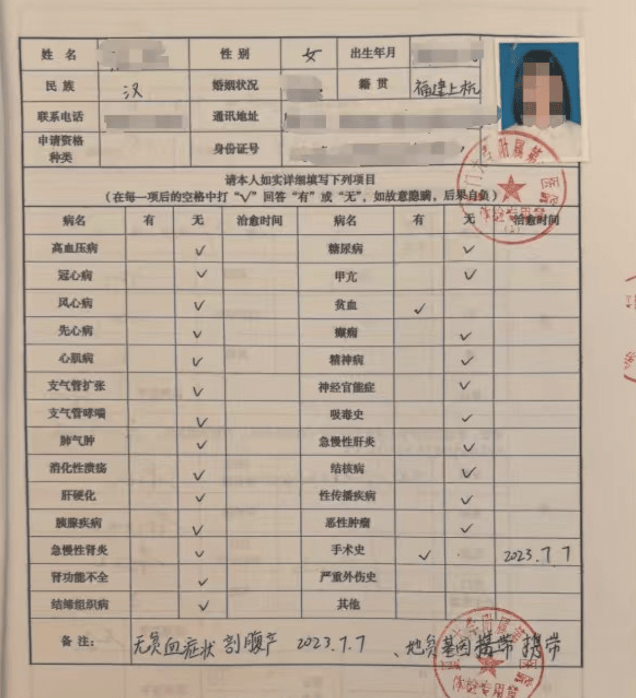 姓名 性别 女 出生年月
民族 汉 婚姻状况 籍贯 福建上杭
联系电话 通讯地址
申请资格种类 身份证号
请本人如实详细填写下列项目
(在每一项后的空格中打"√"回答"有"或"无",如故意隐瞒,后果自负)
病名 有 无 治愈时间 病名 有 无 治愈时间
高血压病 ✓ 糖尿病 ✓
冠心病 ✓ 甲亢 ✓
风心病 ✓ 贫血 ✓
先心病 ✓ 癫痫 ✓
心肌病 ✓ 精神病 ✓
支气管扩张 ✓ 神经官能症 ✓
支气管哮喘 ✓ 吸毒史 ✓
肺气肿 ✓ 急慢性肝炎 ✓
消化性溃疡 ✓ 结核病 ✓
肝硬化 ✓ 性传播疾病 ✓
胰腺疾病 ✓ 恶性肿瘤 ✓
急慢性肾炎 ✓ 手术史 ✓ 2023.7.7
肾功能不全 ✓ 严重外伤史
结缔组织病 ✓ 其他
备注: 无贫血症状 剖腹产 2023.7.7 、地贫基因携带 携带